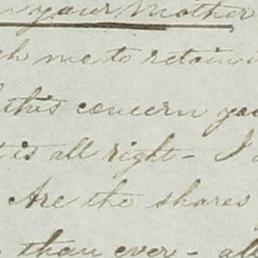 your Mother
me to retain
this concern you
is all right - I
Are the shares
than ever - all